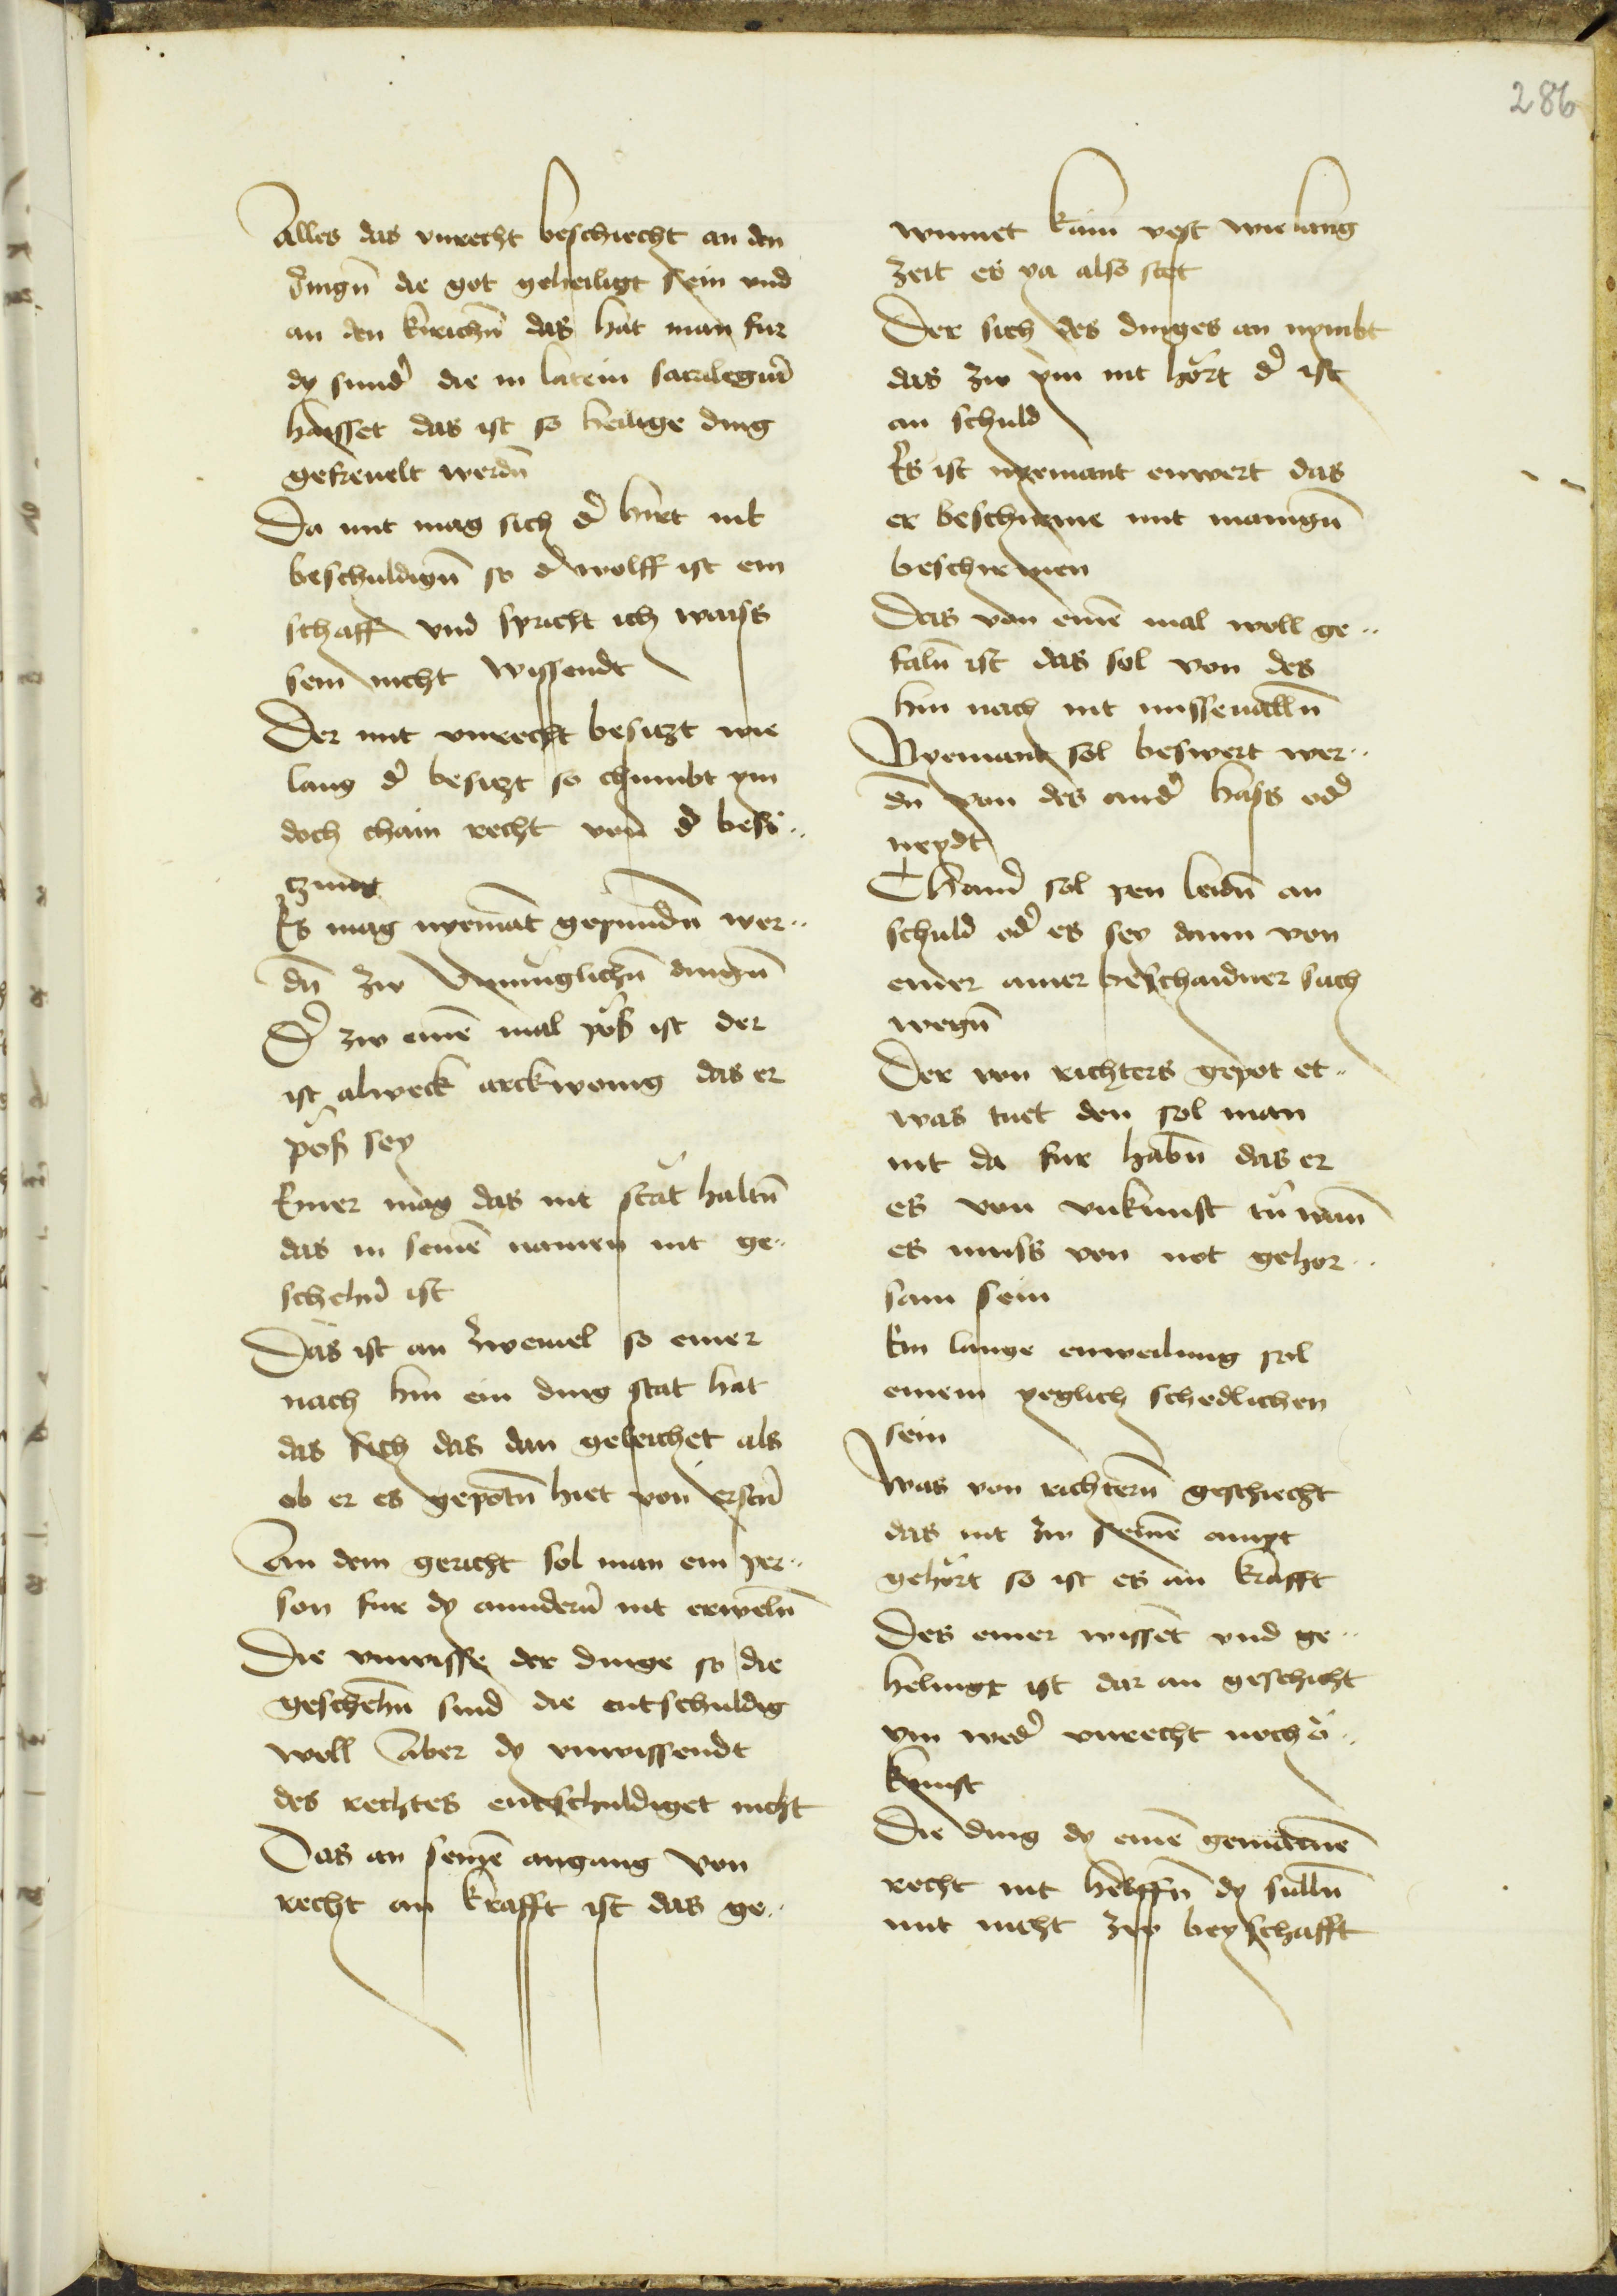 286
Alles das vnrecht beschiecht an den
dingn̄ die got geheiligt sein vnd
an den kirichn̄ das hat man fur
dy sund̾ die in latein sacrilegiu̅
haisset das ist so heilige ding
gefreuelt werdn̄
Da mit mag sich d̾ hirt nit
beschuldign̄ so d̾ wolff ist ein
schaff vnd spricht ich waiss
sein nicht wissendt
Der mit vnrecht besitzt wie
lang d̾ besitzt so chumbt ym
doch chain recht von d̾ besi¨
tzung
Es mag nyema̅t gepundn̄ wer¨
dn̄ zw vnmuglichn̄ dingn̄
D̾ zw eine̅ mal pöß ist der
ist alweck arckwonig das er
pöß sey
Einer mag das nit stät haltn̄
das in seine̅ namen nit ge¨
schehn̄ ist
Das ist an zweiuel so einer
nach hin ein ding stat hat
das sich das dan geleichet als
ob er es gepotn̄ hiet von erstn̄
An dem gericht sol man ein per¨
son fur dy anndern̄ nit erweln̄
Die vnwisse der dinge so die
geschehn̄ sind die entschuldig
woll Aber dy vnwissendt
des rechtes entschuldiget nicht
Das an seine̅ angang von
recht an krafft ist das ge¨
winnet kain vest wielang
zeit es ya also stet
Der sich des dinges an nymbt
das zw ym nit hört d̾ ist
an schuld
Es ist nyemant enwert das
er beschirme mit manign̄
beschirmen
Das von eine̅ mal woll ge¨
faln̄ ist das sol von des
hin nach nit missevalln̄
Nyemant sol beswert wer¨
dn̄ von des and̾ hass od̾
neydt
sol pen leidn̄ an
schuld od̾ es sey dann von
einer beschaidner sach
wegn̄
Der von richters gepot et¨
was tuet den sol man
nit da fur habn̄ das er
es von vnkunst tu̇ wan̄
es muss von not gehor¨
sam sein
Ein lange enweilung sol
einem yeglich schedlichen
sein
Was von richtern̄ geschiecht
das nit zw seine̅ ampt
gehört so ist es an krafft
Des einer wisse̅t vnd ge¨
helingt ist dar an geschicht
ym wed̾ vnrecht noch
kunst
Die ding dy eine̅ gemaine̅
recht nit helffn̄ dy sulln̄
mit nicht zw beyschafft